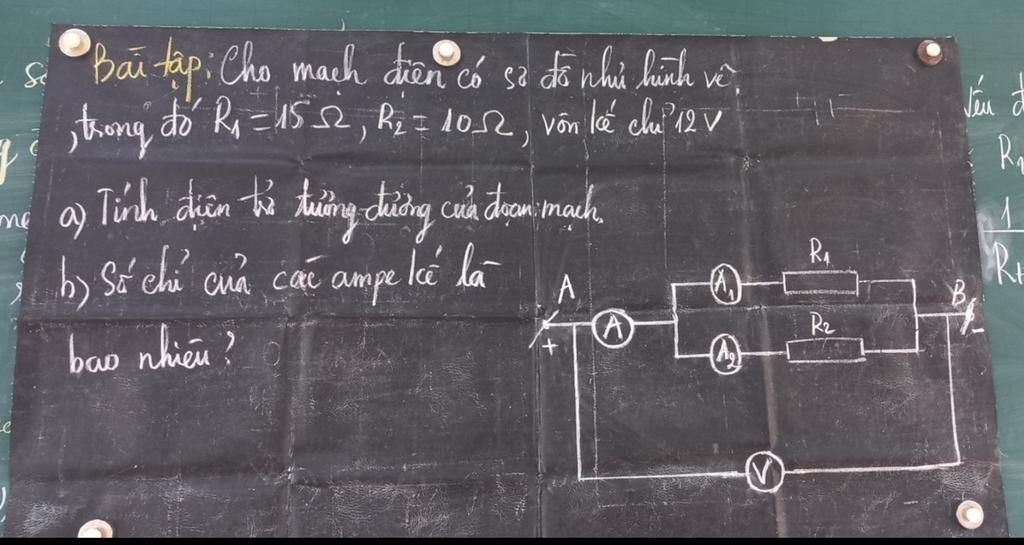 Bài tập: Cho mạch điện có sơ đồ như hình vẽ.
, trong đó R1 = 15 Ω, R2 = 10 Ω, vôn kế chỉ 12 V
a) Tính điện trở tương đương của đoạn mạch.
b) Số chỉ của các ampe kế là
bao nhiêu?
A
+
A
A1
R1
A2
R2
B
-
V
R1
1